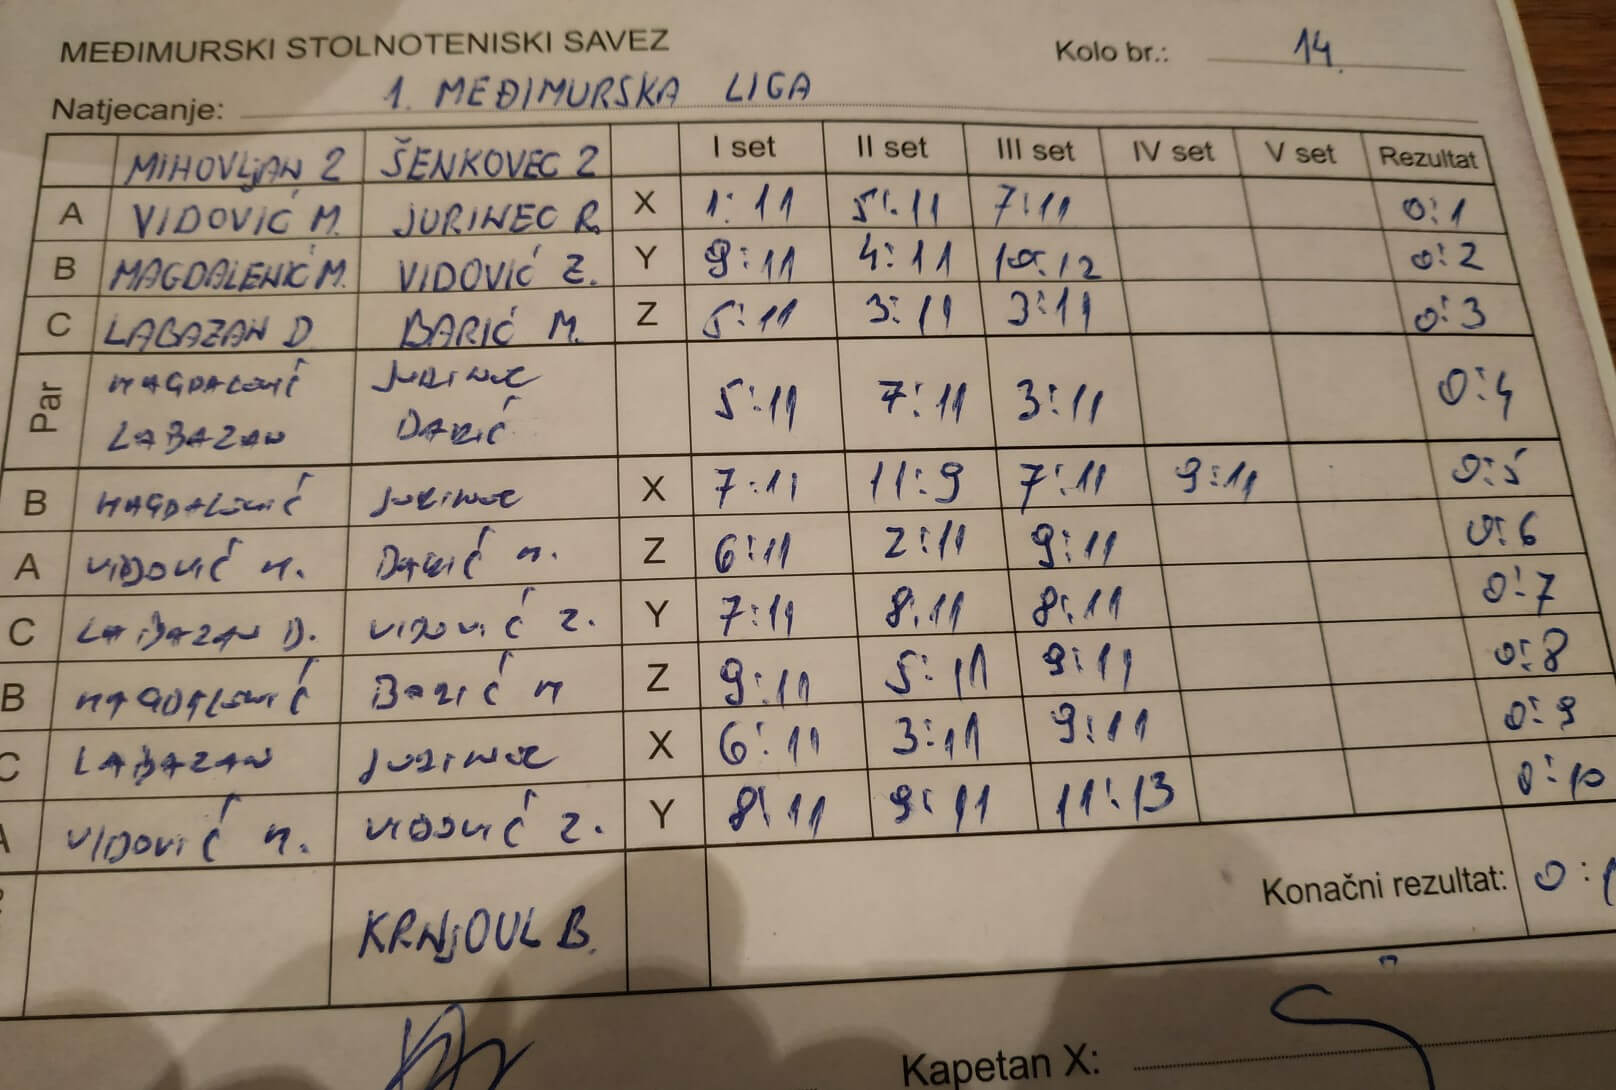 MEĐIMURSKI STOLNOTENISKI SAVEZ Kolo br.: 14.
Natjecanje: 1. MEĐIMURSKA LIGA
MIHOVLJAN 2 ŠENKOVEC 2 I set II set III set IV set V set Rezultat
A VIDOVIĆ M. JURINEC R. X 1:11 5:11 7:11 0:1
B MAGDALENIĆ M. VIDOVIĆ Z. Y 9:11 4:11 10:12 0:2
C LABAZAN D. BARIĆ M. Z 5:11 3:11 3:11 0:3
Par MAGDALENIĆ JURINEC 5:11 7:11 3:11 0:4
LABAZAN BARIĆ
B MAGDALENIĆ JURINEC X 7:11 11:9 7:11 9:11 0:5
A VIDOVIĆ M. BARIĆ M. Z 6:11 2:11 9:11 0:6
C LABAZAN D. VIDOVIĆ Z. Y 7:11 8:11 8:11 0:7
B MAGDALENIĆ BARIĆ M Z 9:11 5:11 9:11 0:8
C LABAZAN JURINEC X 6:11 3:11 9:11 0:9
A VIDOVIĆ M. VIDOVIĆ Z. Y 8:11 9:11 11:13 0:10
KRNJOUL B. Konačni rezultat: 0:1
Kapetan X: